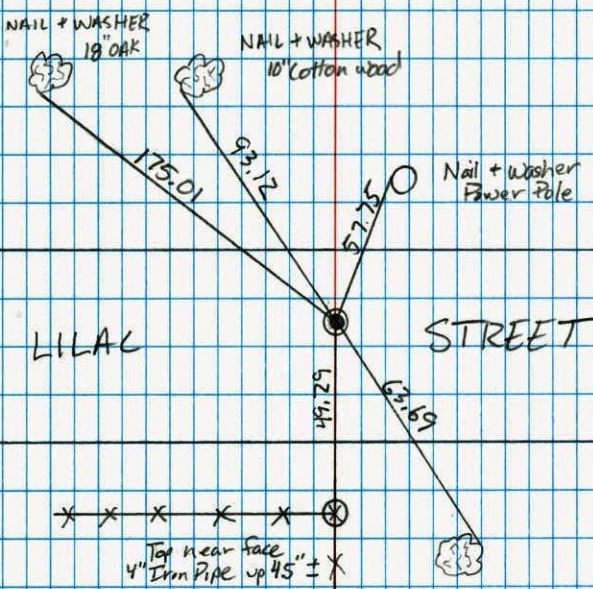 NAIL + WASHER
18" OAK
NAIL + WASHER
10" Cotton wood
175.01
93.12
57.75
Nail + Washer
Power Pole
LILAC
STREET
49.29
63.69
Top near face
4" Iron Pipe up 45" ±